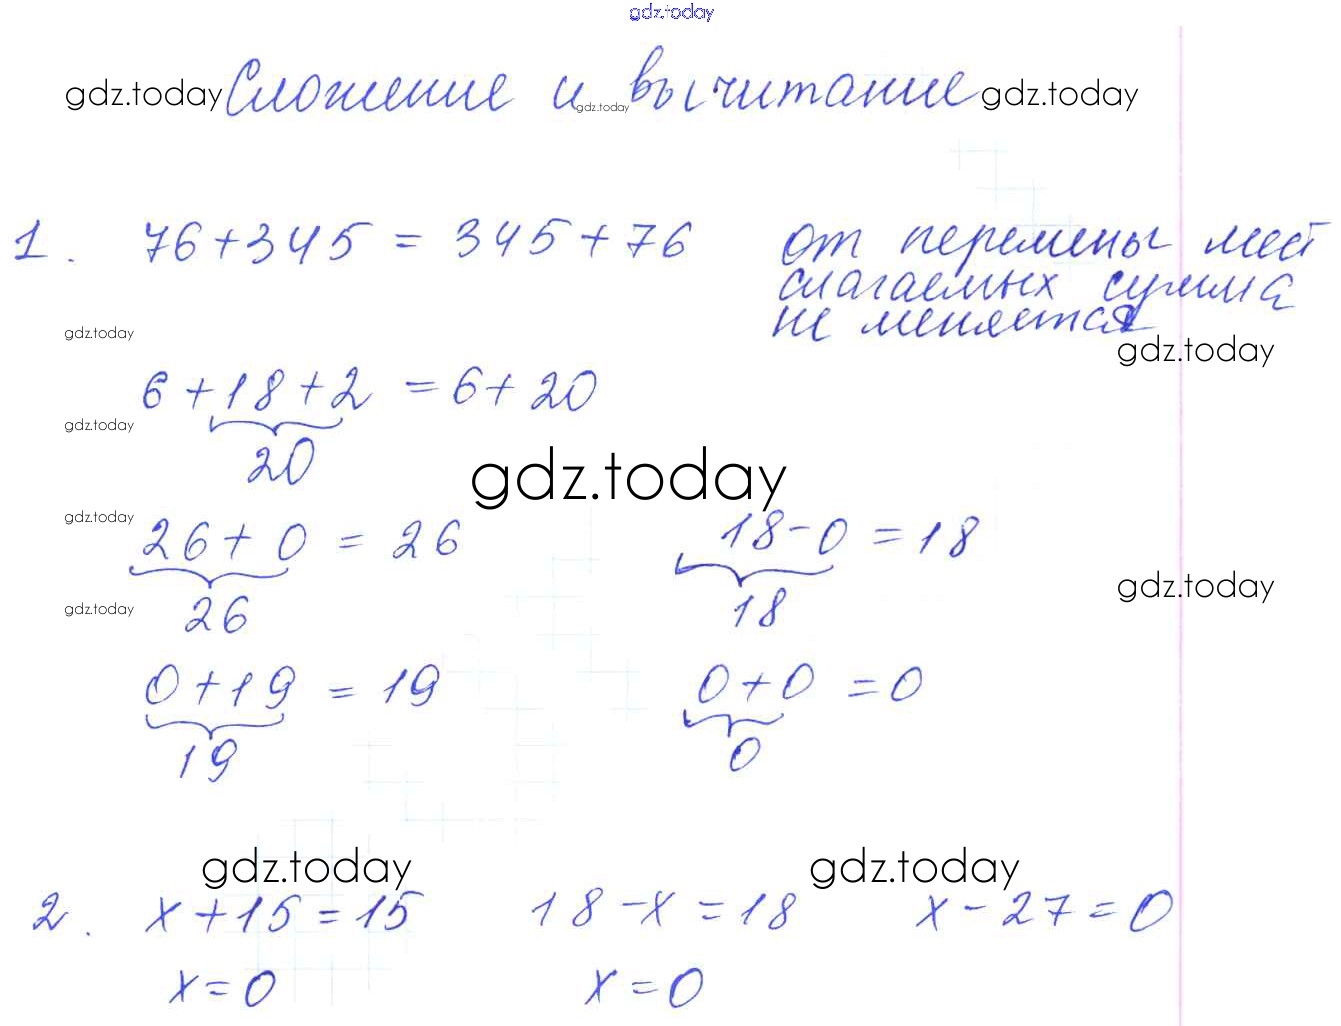 gdz.today
gdz.today Сложение и gdz.today вычитание gdz.today
1. 76+345 = 345+76 от перемены мест
слагаемых сумма
не меняется
gdz.today gdz.today
6+18+2 = 6+20
gdz.today
20
gdz.today
gdz.today 26+0 = 26 18-0 = 18
gdz.today
gdz.today 26 18
0+19 = 19 0+0 = 0
19 0
gdz.today gdz.today
2. x+15=15 18-x=18 x-27=0
x=0 x=0